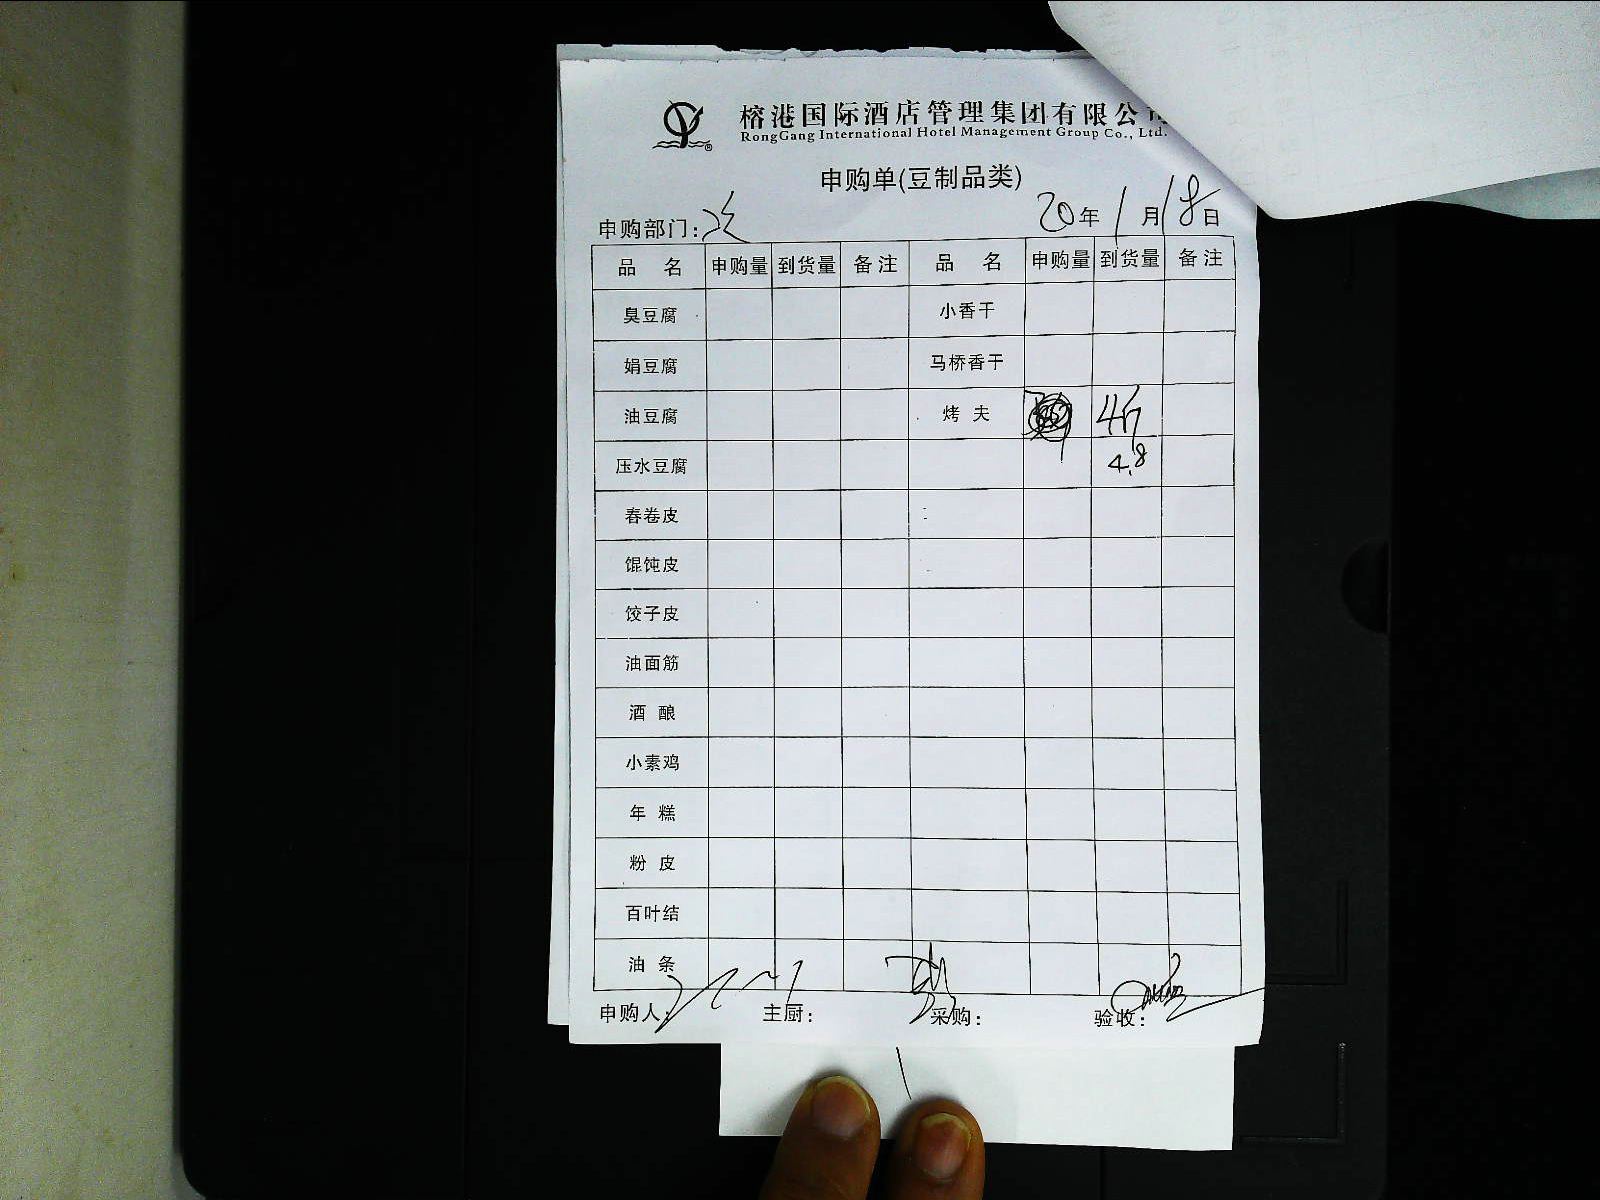 榕港国际酒店管理集团有限公司
RongGang International Hotel Management Group Co., Ltd.
申购单(豆制品类)
申购部门: 20年1月18日
品 名 申购量 到货量 备注 品 名 申购量 到货量 备注
臭豆腐 小香干
娟豆腐 马桥香干
油豆腐 烤夫 4斤
压水豆腐 4.8
春卷皮
馄饨皮
饺子皮
油面筋
酒酿
小素鸡
年糕
粉皮
百叶结
油条
申购人: 主厨: 采购: 验收: